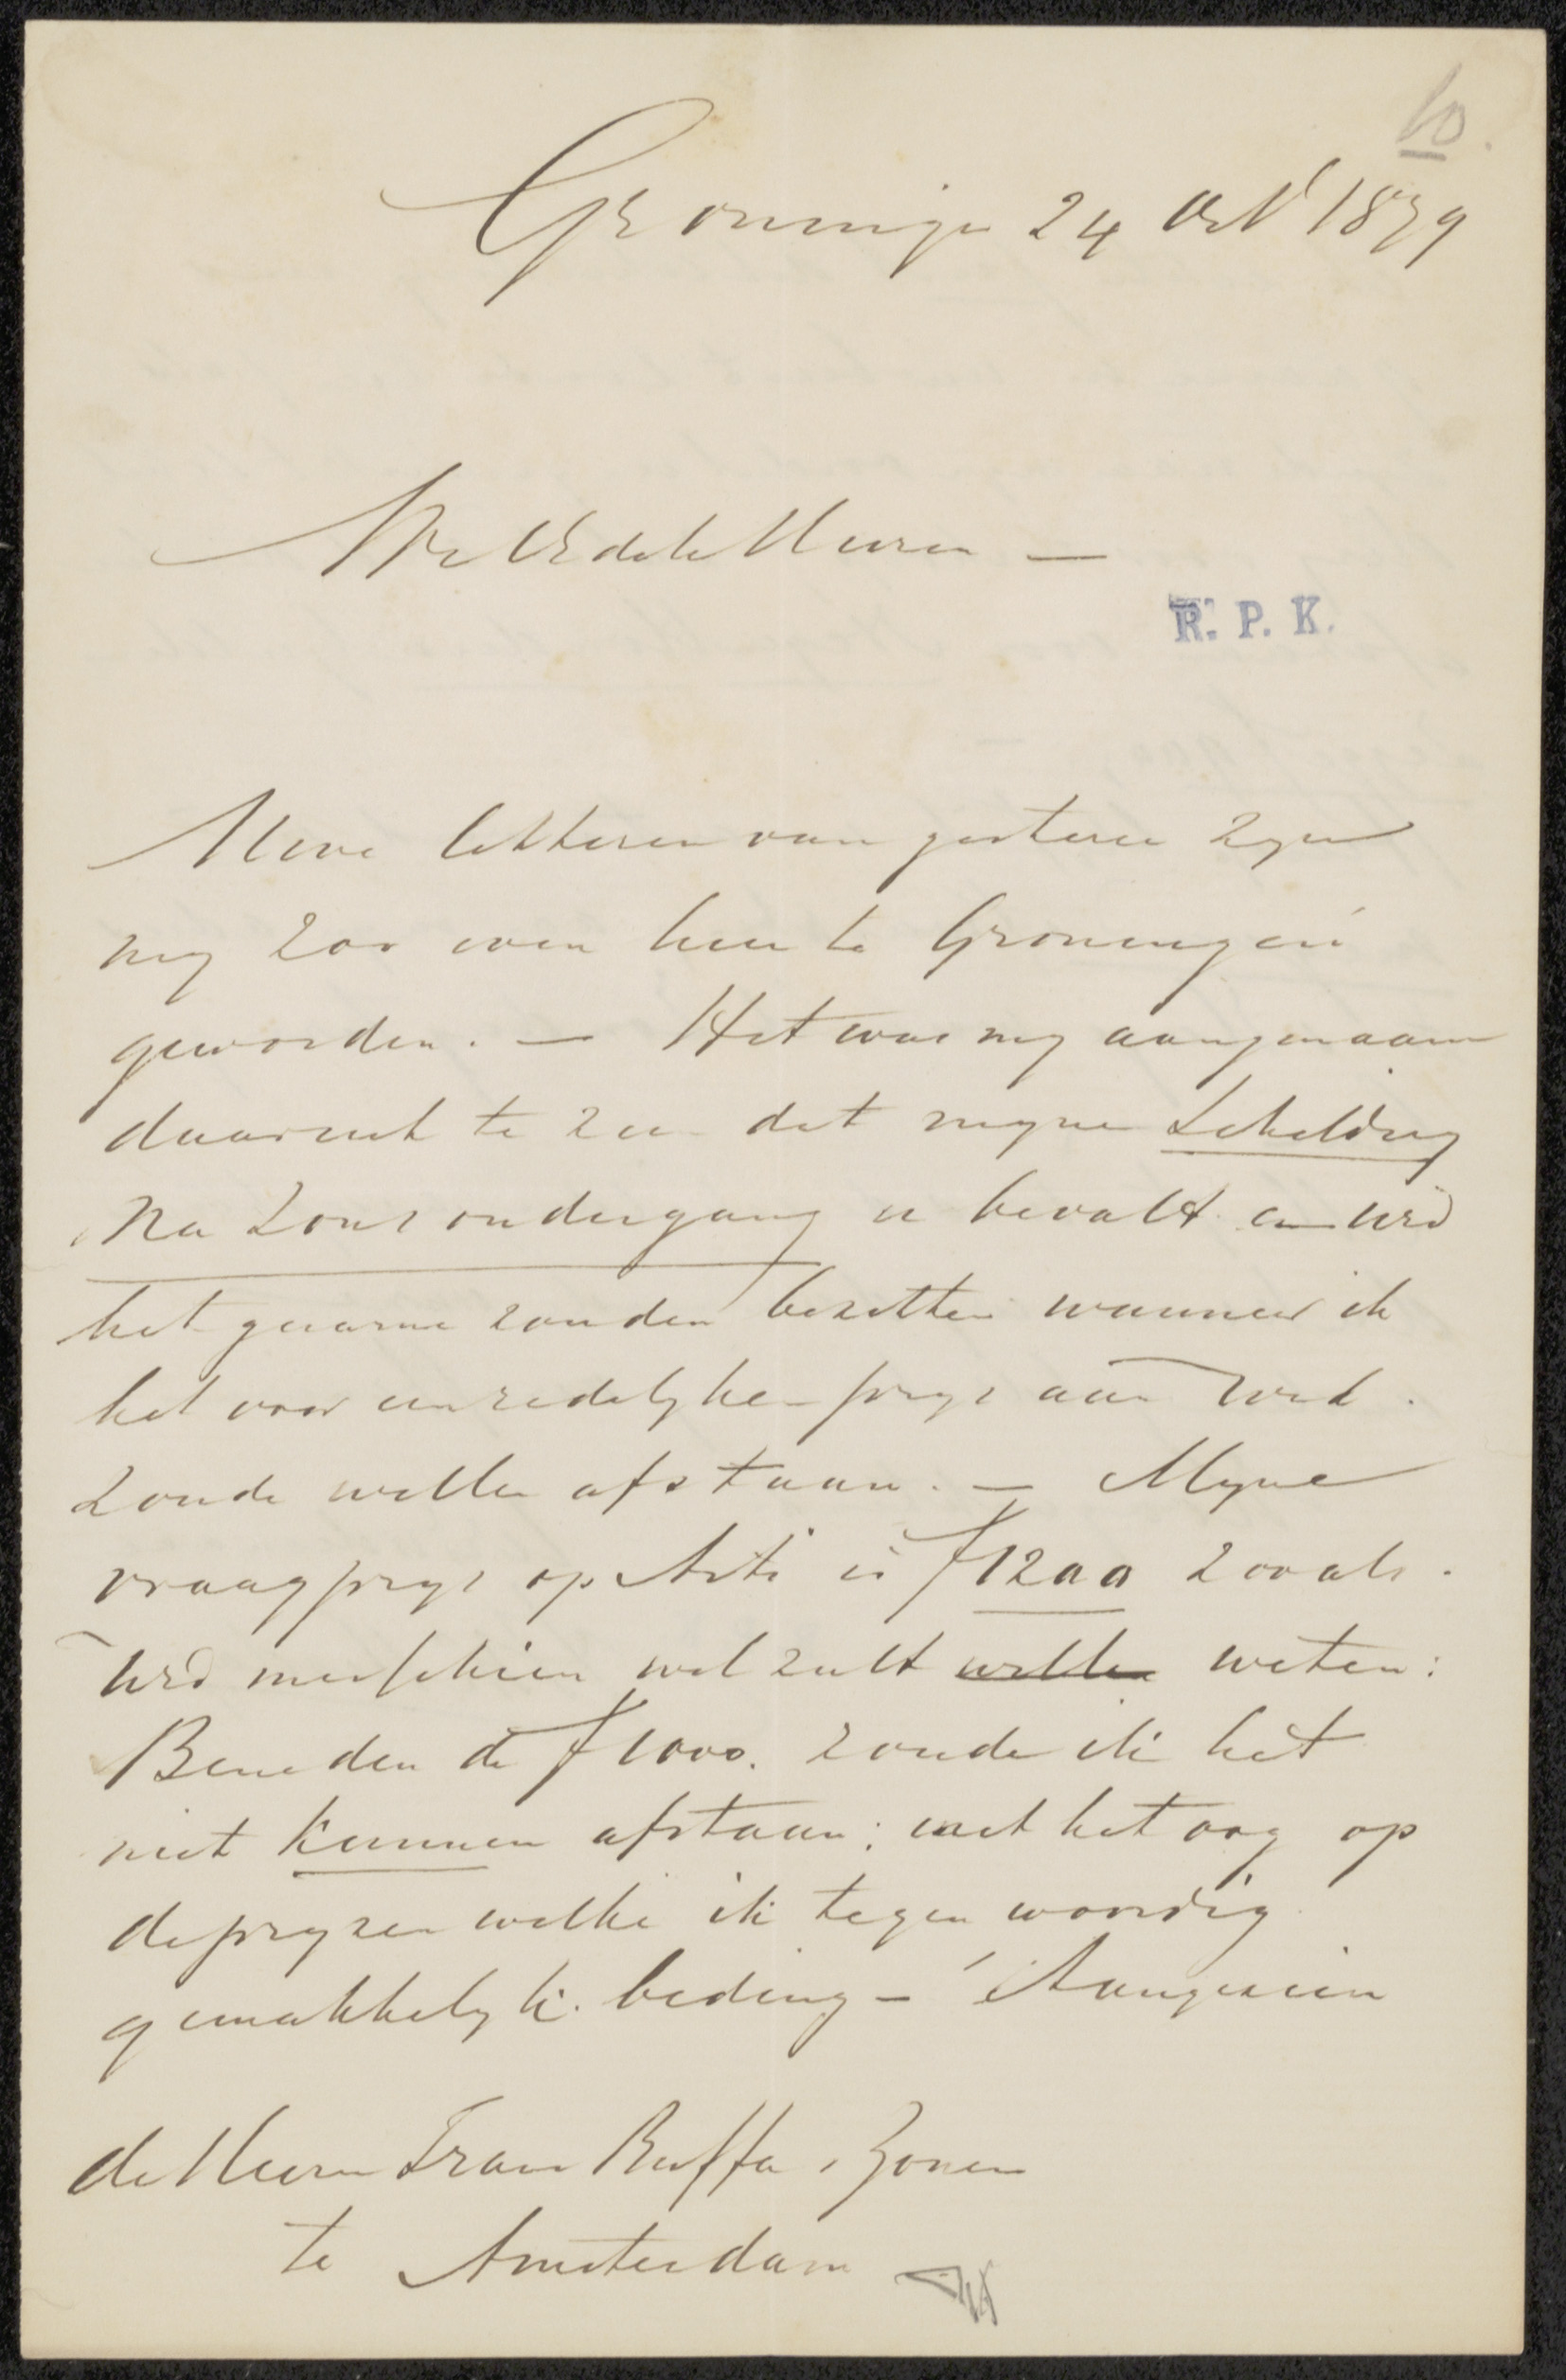 10.
Groningen 24 Oct 1879
WelEdele Heeren —
R. P. K.
Uwe letteren van gisteren zyn
my zoo even hier te Groningen
geworden. — Het was my aangenaam
daaruit te zien dat myne Schildery
Na Zonsondergang u bevalt en UEd
het gaarne zouden bezitten wanneer ik
het voor een redelyken prys aan UEd.
zoude willen afstaan. — Myne
vraagprys op Arti is ƒ1200 zooals
UEd misschien wel zult willen weten:
Beneden de ƒ1000. zoude ik het
niet kunnen afstaan; met het oog op
de pryzen welke ik tegenwoordig
gemakkelyk beding — Aangezien
de Heeren Frans Buffa & Zonen
te Amsterdam